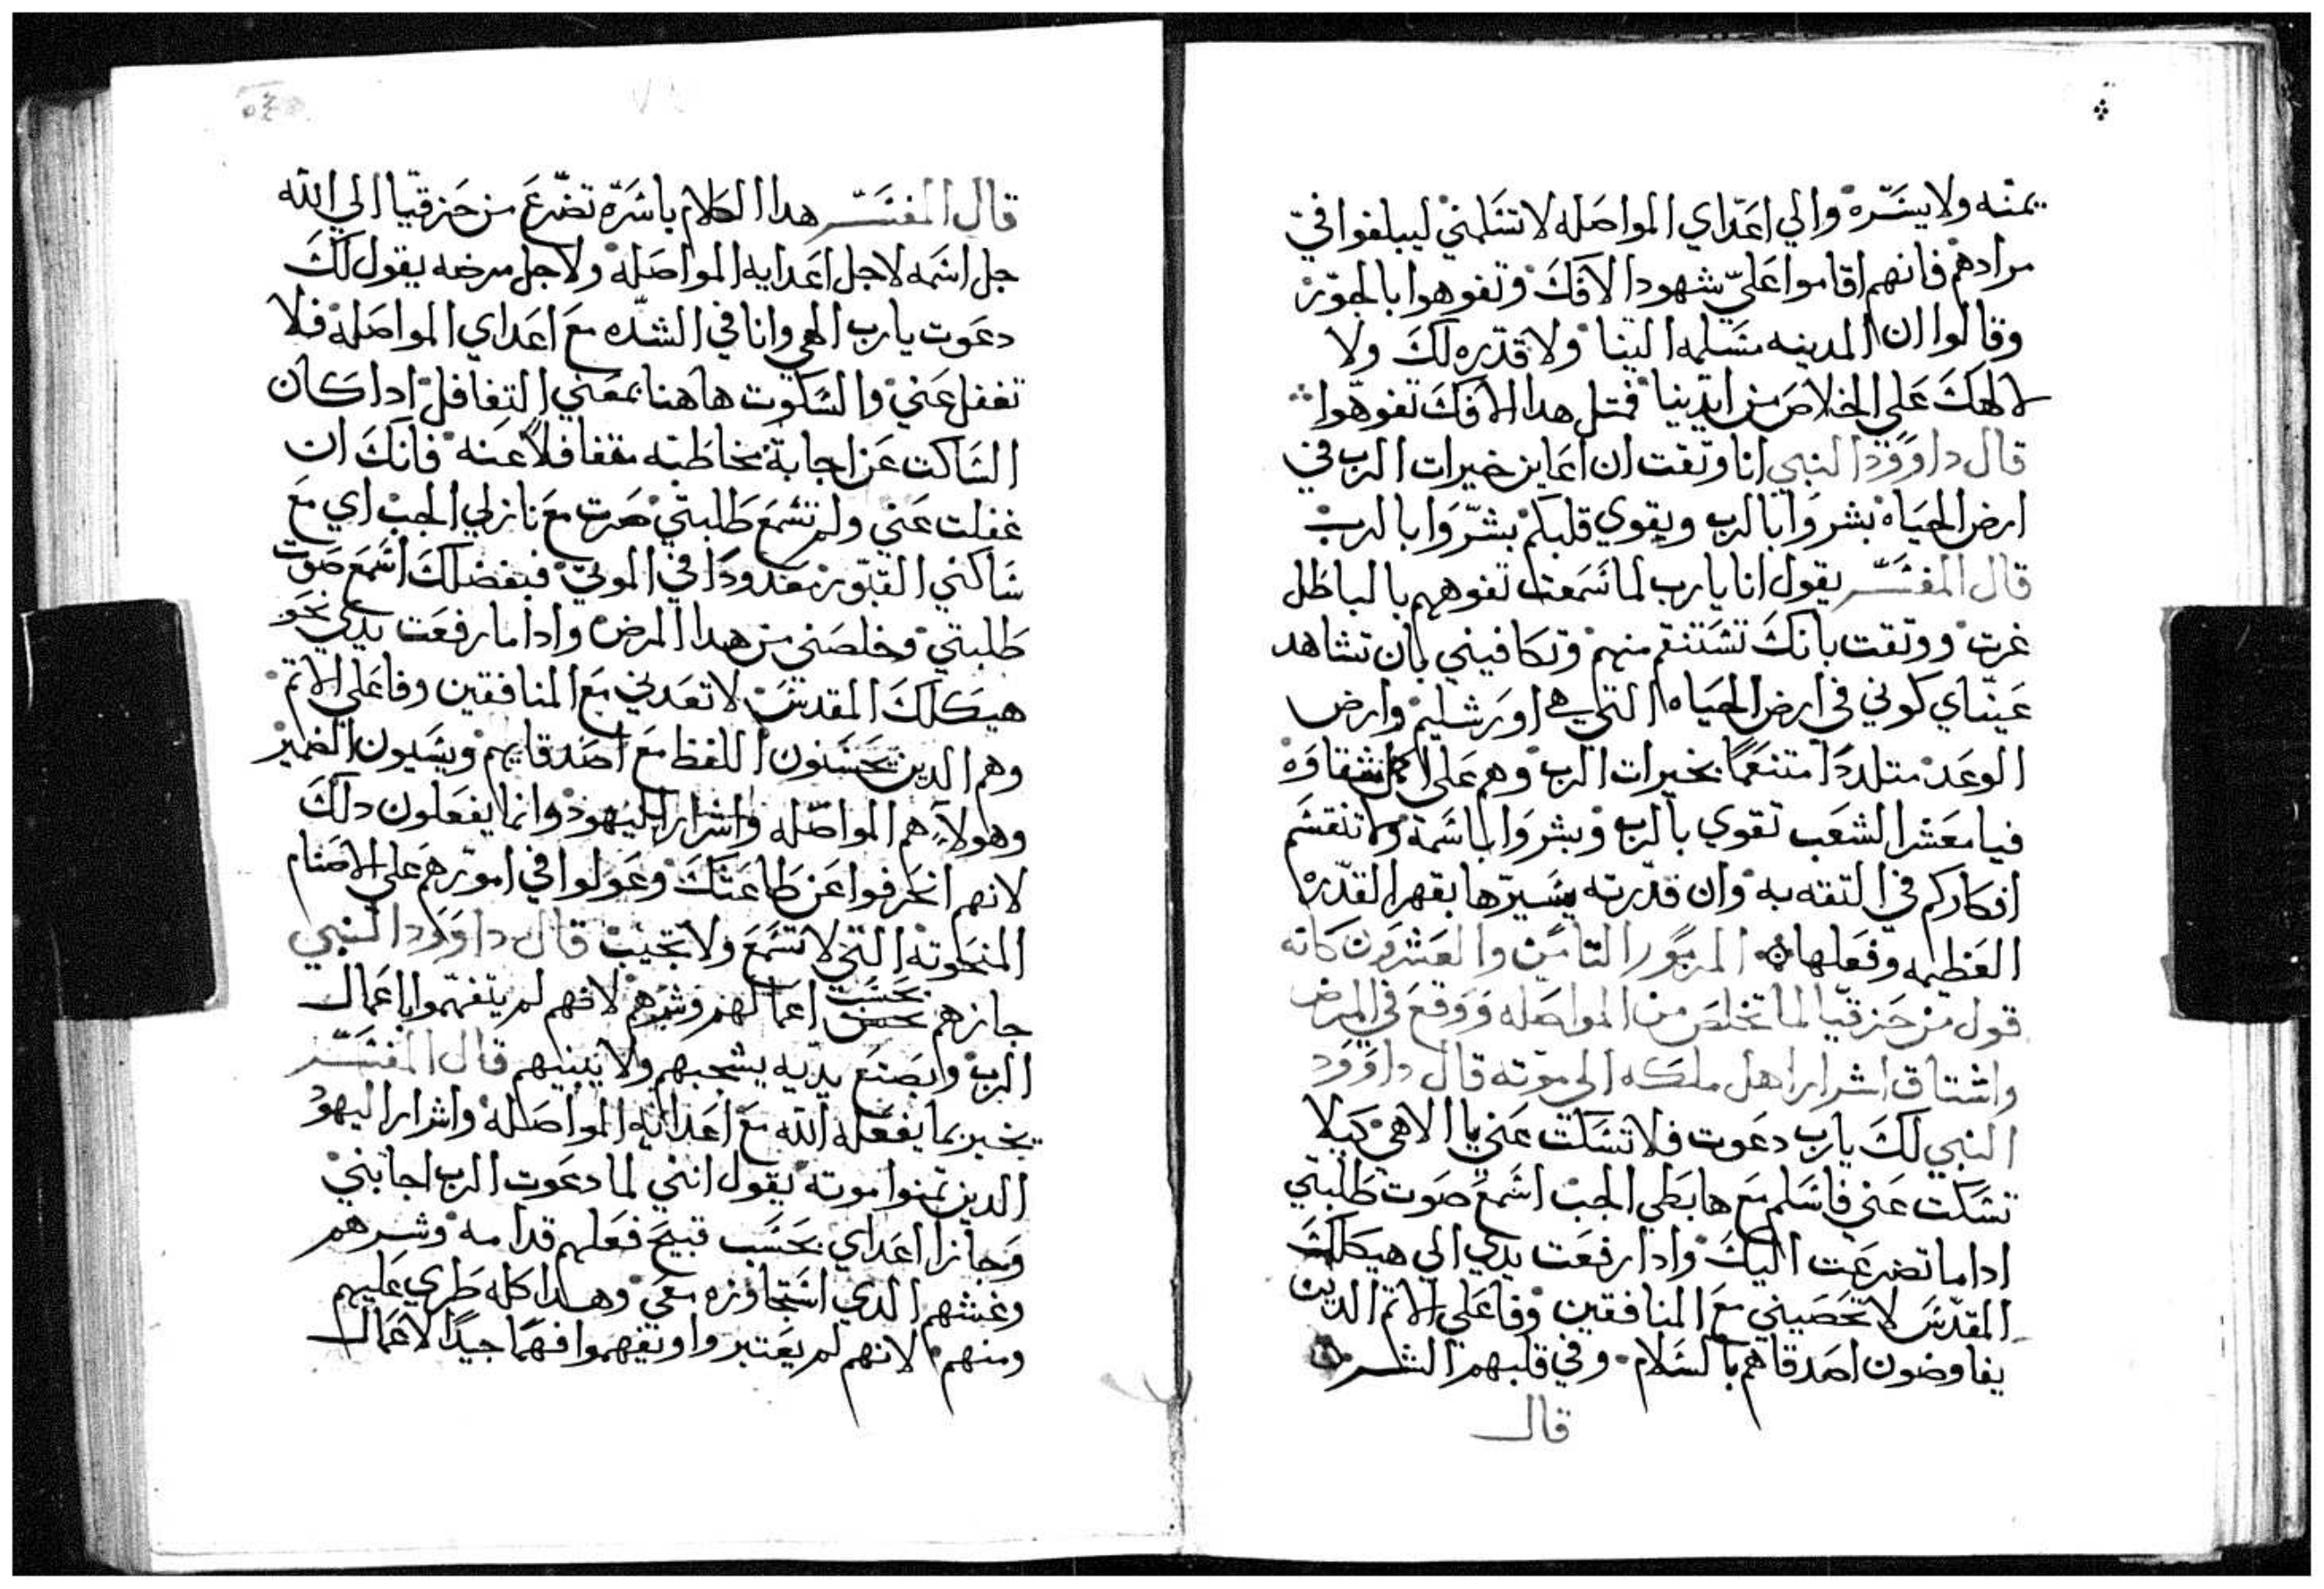 يمنه ولا يسره والي اعداي المواصله لا تسلمني ليبلغوا في
مرادهم فانهم اقاموا علي شهود الافك وتفوهوا بالجور
وقالوا ان المدينه مسلمه الينا ولا قدره لك ولا
لالهك علي الخلاص من ايدينا فمتل هدا الافك تفوهوا
قال داوود النبي انا وتقت ان اعاين خيرات الرب في
ارض الحياه بشروا بالرب ويقوي قلبكم بشروا بالرب
قال المفسر يقول انا يارب لما سمعت تفوههم بالباطل
غرت ووتقت بانك تستنقم منهم وتكافيني بان تشاهد
عيناي كوني في ارض الحياه التي هي اورشليم وارض
الوعد متلددا متنعما بخيرات الرب وهم علي اكمل شقاوه
فيا معشر الشعب تقوي بالرب وبشروا باسمه ولا تنقسم
افكاركم في التقه به وان قدرته يسيرها بقهر القدره
العظيمه وفعلها المزمور التامن والعشرون كانه
قول من حزقيا لما تخلص من المواصله ووقع في المرض
واشتاق اشرار اهل ملكه الي موته قال داوود
النبي لك يارب دعوت فلا تسكت عني يا الاهي كيلا
تسكت عني فاسلم مع هابطي الجب اسمع صوت طلبتي
ادا ما تضرعت اليك وادا رفعت يدي الي هيكلك
المقدس لا تحصيني مع المنافقين وفاعلي الاتم الدين
يفاوضون اصدقاهم بالسلام وفي قلبهم الشر
قال
قال المفسر هدا الكلام باسره تضرع من حزقيا الي الله
جل اسمه لاجل اعدايه المواصله ولاجل مرضه يقول لك
دعوت يارب الهي وانا في الشده مع اعداي المواصله فلا
تغفل عني والسكوت هاهنا بمعني التغافل ادا كان
الساكت عن اجابة مخاطبه متغافلا عنه فانك ان
غفلت عني ولم تسمع طلبتي صرت مع نازلي الجب اي مع
ساكني القبور معدودا في الموتي فبفضلك اسمع صوت
طلبتي وخلصني من هدا المرض وادا ما رفعت يدي نحو
هيكلك المقدس لا تعدني مع المنافقين وفاعلي الاتم
وهم الدين يحسنون اللفظ مع اصدقايهم ويسيون الضمير
وهولاء هم المواصله واشرار اليهود وانما يفعلون دلك
لانهم انحرفوا عن طاعتك وعولوا في امورهم علي الاصنام
المنحوته التي لا تسمع ولا تجيب قال داوود النبي
جازهم بحسب اعمالهم وشرهم لانهم لم يتفهموا باعمال
الرب وبصنع يديه يسحبهم ولا يبنيهم قال المفسر
يخبر بما يفعله الله مع اعدائه المواصله واشرار اليهود
الدين تمنوا موته يقول انني لما دعوت الرب اجابني
وجازا اعداي بحسب قبيح فعلهم قدامه وشرهم
وغشهم الدي استجاوزه معي وهدا كله طري عليهم
ومنهم لانهم لم يعتبروا ويفهموا فهما جيدا لاعمال